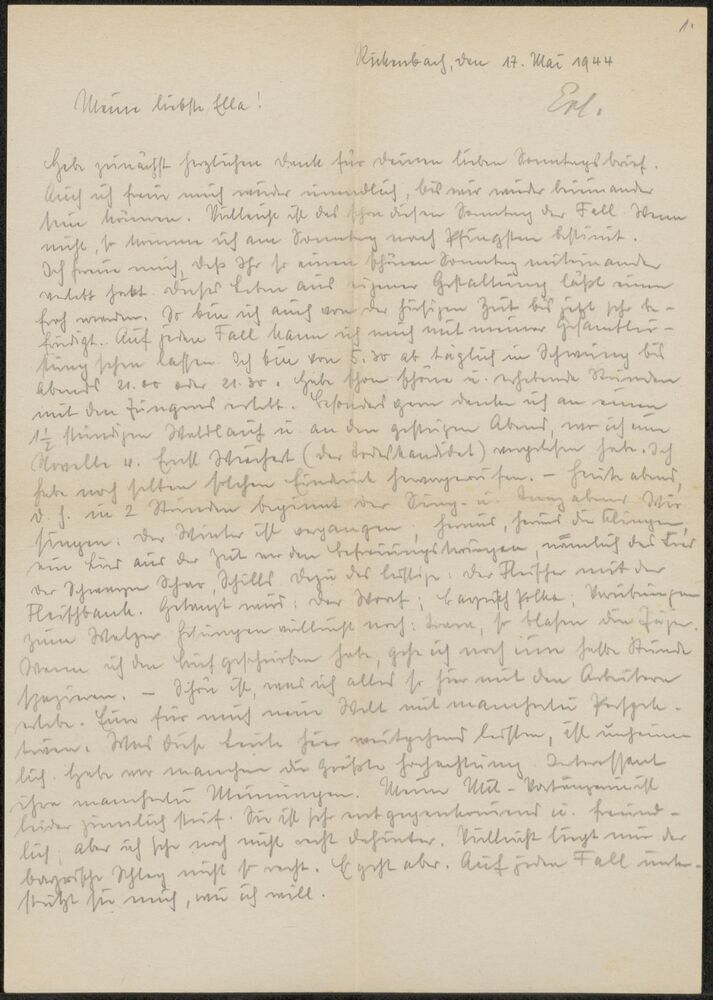 1.
Rickenbach, den 17. Mai 1944
Erl.
Meine liebste Ella!
Habe zunächst herzlichen Dank für Deinen lieben Sonntagsbrief.
Auch ich freue mich wieder unendlich, bis wir wieder beieinander
sein können. Vielleicht ist das schon diesen Sonntag der Fall. Wenn
nicht, so komme ich am Sonntag nach Pfingsten bestimmt.
Ich freue mich, daß Ihr so einen schönen Sonntag miteinander
verlebt habt. Dieses Leben aus eigener Gestaltung läßt einen
froh werden. So bin ich auch von der hiesigen Zeit bis jetzt sehr be-
friedigt. Auf jeden Fall kann ich mich mit meiner Gesamtlei-
stung sehen lassen. Ich bin von 5.30 ab täglich in Schwung bis
abends 21.00 oder 21.30. Habe schon schöne u. erhebende Stunden
mit den Jungens erlebt. Besonders gern denke ich an einen
1½ stündigen Waldlauf u. an den gestrigen Abend, wo ich eine
Novelle v. Ernst Wiechert (der Todeskandidat) vorgelesen habe. Ich
habe noch selten solchen Eindruck hervorgerufen. – Heute abend,
d. h. in 2 Stunden beginnt der Sing- u. Tanzabend. Wir
singen: Der Winter ist vergangen; heraus, heraus die Klingen,
ein Lied aus der Zeit vor den Befreiungskriegen, nämlich das Lied
der Schwarzen Schar, Schills. Dazu das lustige: Der Fleischer mit der
Fleischbank. Getanzt wird: der ; bayrisch Polka; Vorübungen
zum Walzer. Gesungen vielleicht noch: , so blasen die Jäger.
Wenn ich den Brief geschrieben habe, gehe ich noch eine halbe Stunde
spazieren. – Schön ist, was ich alles so hier mit den Arbeitern
erlebe. Eine für mich neue Welt mit mancherlei Perspek-
tiven. Was diese Leute hier weitgehend leisten, ist unheim-
lich. Habe vor manchen die größte Hochachtung. Interessant
ihre mancherlei Meinungen. Meine Mit-
leider ziemlich steif. Sie ist sehr entgegenkommend u. freund-
lich; aber ich sehe noch nicht recht dahinter. Vielleicht liegt mir der
bayrische Schlag nicht so recht. Es geht aber. Auf jeden Fall unter-
stützt sie mich, wie ich will.